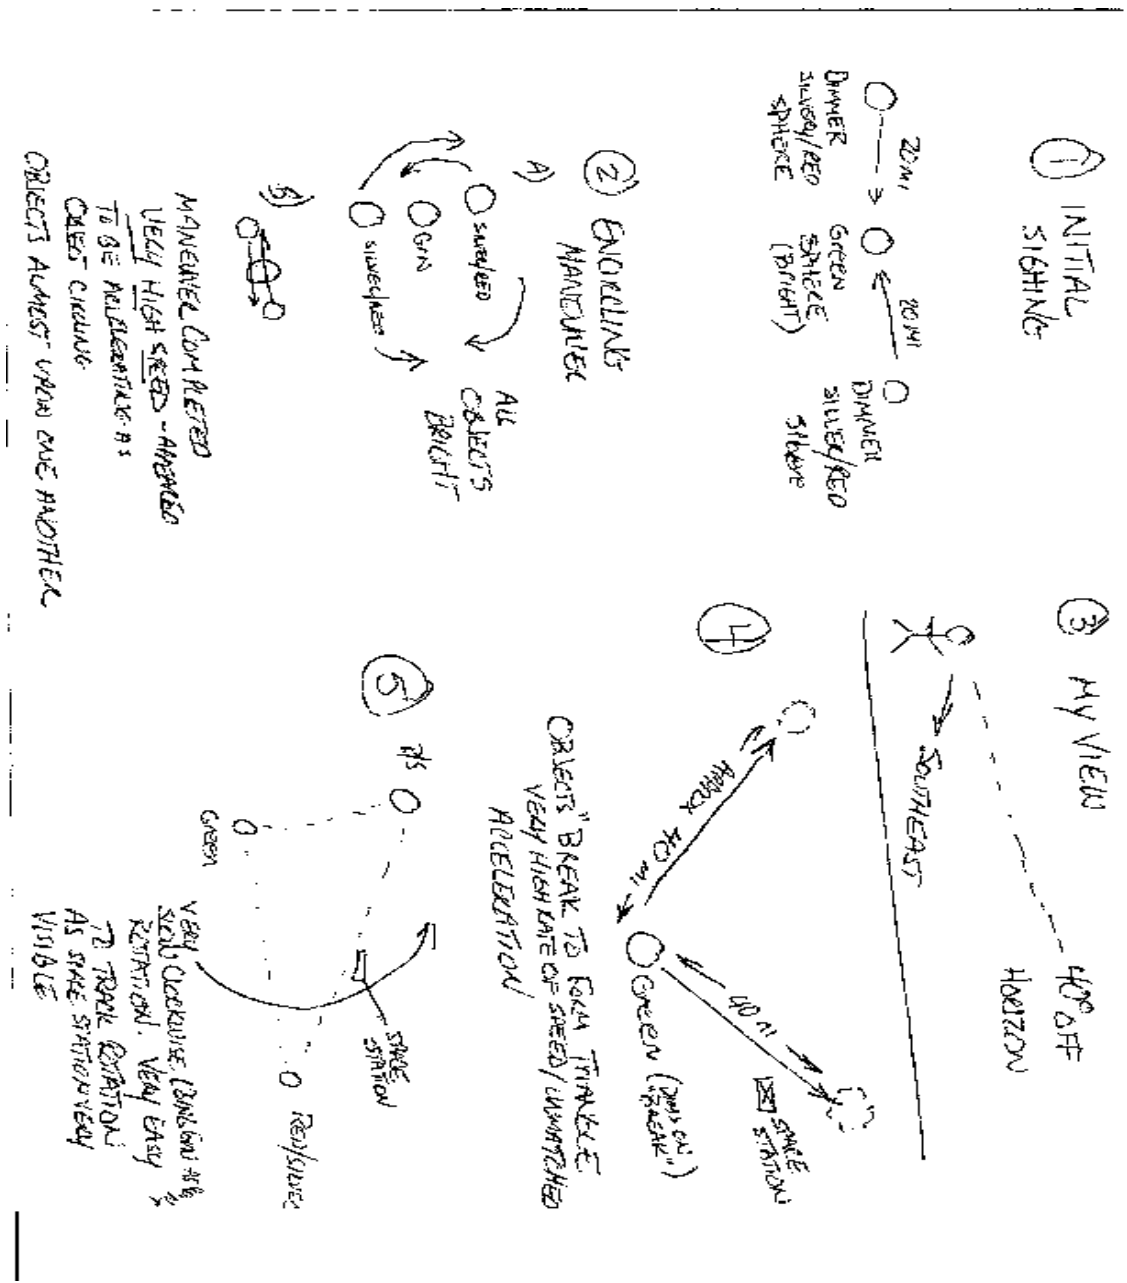 ① INITIAL
SIGHING
20 MI
20 MI
DIMMER
SILVERY/RED
SPHERE
GREEN
SPHERE
(BRIGHT)
DIMMER
SILVER/RED
② ENCIRCLING
MANEUVER
A)
SILVER/RED
GRN
SILVER/RED
ALL
OBJECTS
BRIGHT
B)
MANEUVER COMPLETED
VERY HIGH SPEED - APPEARED
TO BE ACCELERATING AS
OBJECT CIRCLING
OBJECTS ALMOST UPON ONE ANOTHER
③ MY VIEW
40° OFF
HORIZON
SOUTHEAST
④
APPROX 40 MI
40 MI
GREEN (DIMS ON
"BREAK")
SPACE
STATION
OBJECTS "BREAK TO FORM TRIANGLE
VERY HIGH RATE OF SPEED/UNMATCHED
ACCELERATION
⑤
R/S
GREEN
SPACE
STATION
RED/SILVER
VERY
SLOW CLOCKWISE
ROTATION. VERY EASY
TO TRACK ROTATION
AS SPACE STATION VERY
VISIBLE